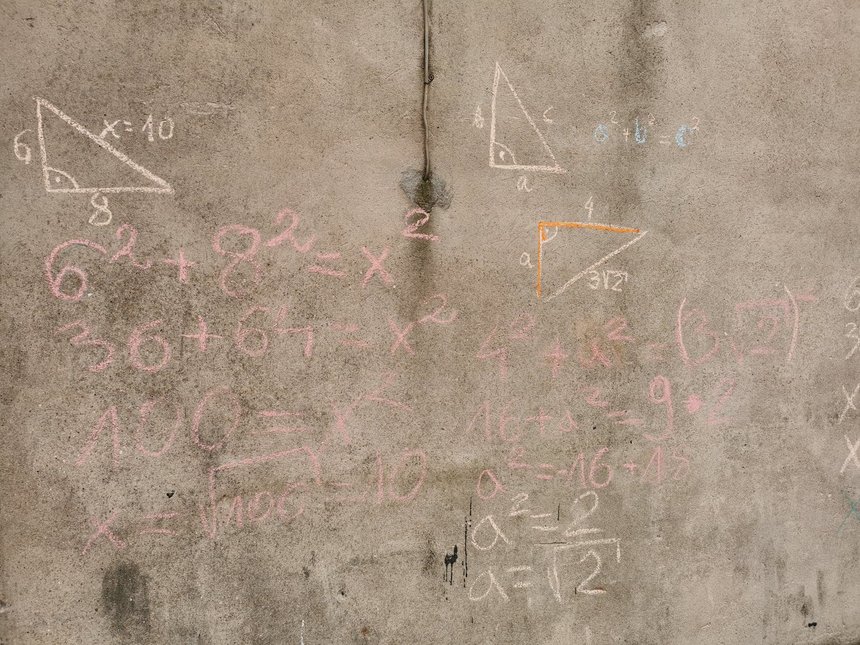 6
x=10
8
6² + 8² = x²
36 + 64 = x²
100 = x²
x = √100 = 10
b
c
a
a² + b² = c²
4
a
3√2
4² + a² = (3√2)²
16 + a² = 9 • 2
a² = -16 + 18
a² = 2
a = √2
6
3
x
x
x